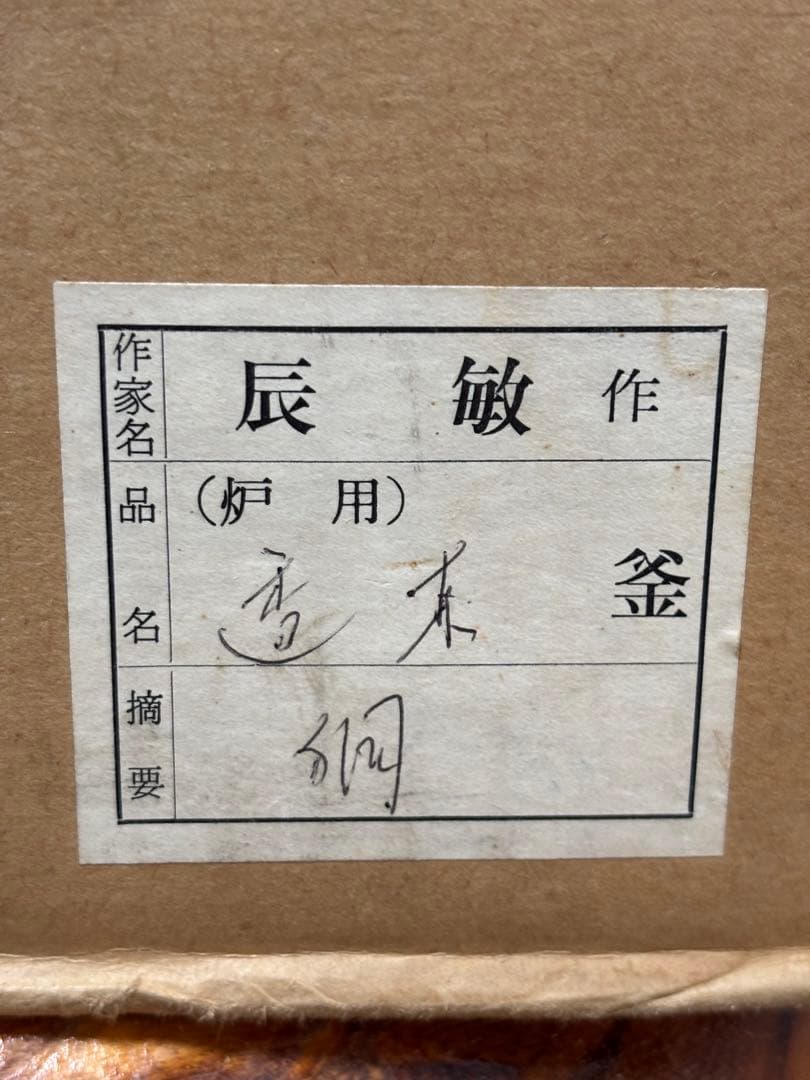 作家名 辰 敏 作
品名 (炉 用)
透木 釜
摘要